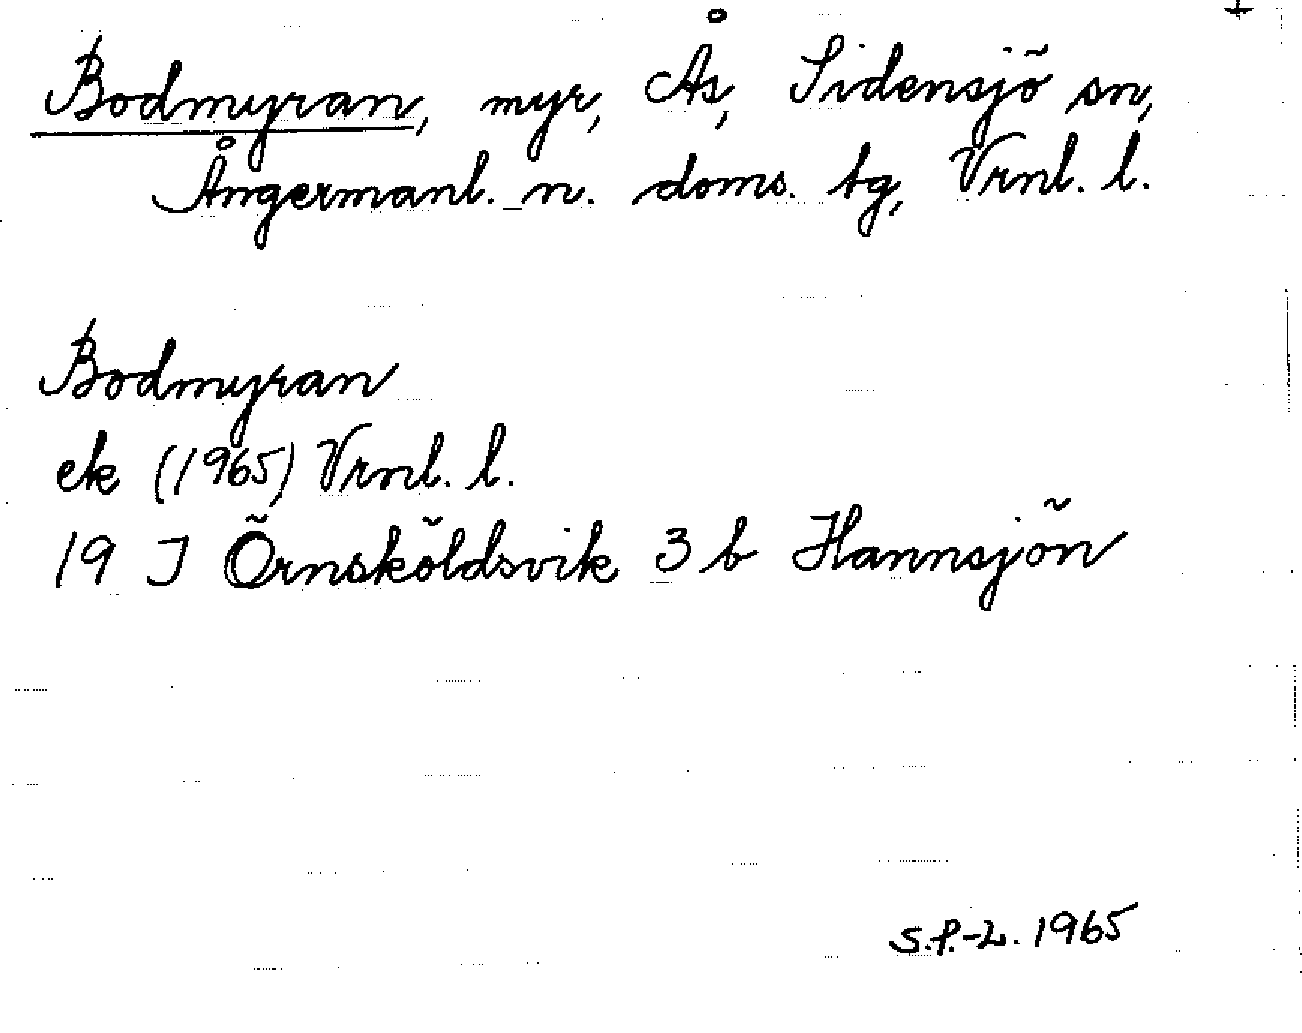 +
Bodmyran, myr, Ås, Sidensjö sn,
Ångermanl. n. doms. tg, Vrnl. l.
Bodmyran
ek (1965) Vrnl. l.
19 J Örnsköldsvik 3 b Hannsjön
S.P.-L. 1965